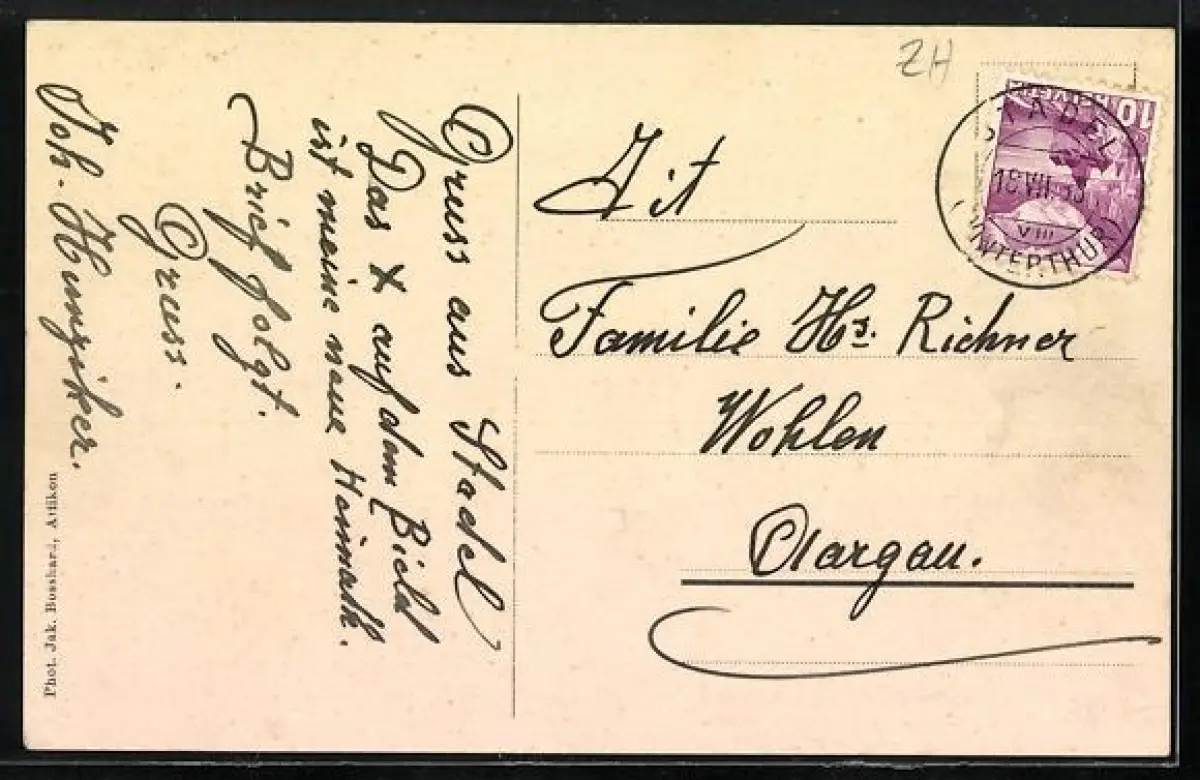 Gruss aus Stadel
Das X auf dem Bield
ist meine neue Heimath.
Brief folgt.
Gruss.
Joh. Hunziker.
Phot. Jak. Bosshard, Attikon
ZH
HELVETIA 10
STADEL
VIII
(WINTERTHUR)
Tit
Familie Hs. Richner
Wohlen
Aargau.